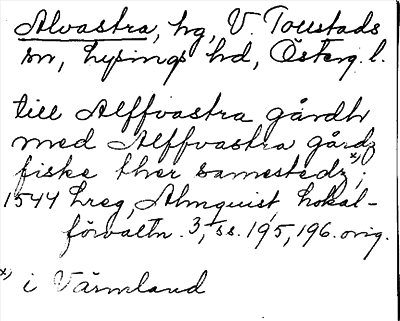 Alvastra, hg, V. Toustads
sn, Lysings hd, Österg. l.
till Alffvastra gårdh
med Alffvastra gårdz
fiske ther samestedz x);
1544 Lreg, Almquist, Lokal-
förvaltn. 3, ss. 195, 196. orig.
x) i Värmland